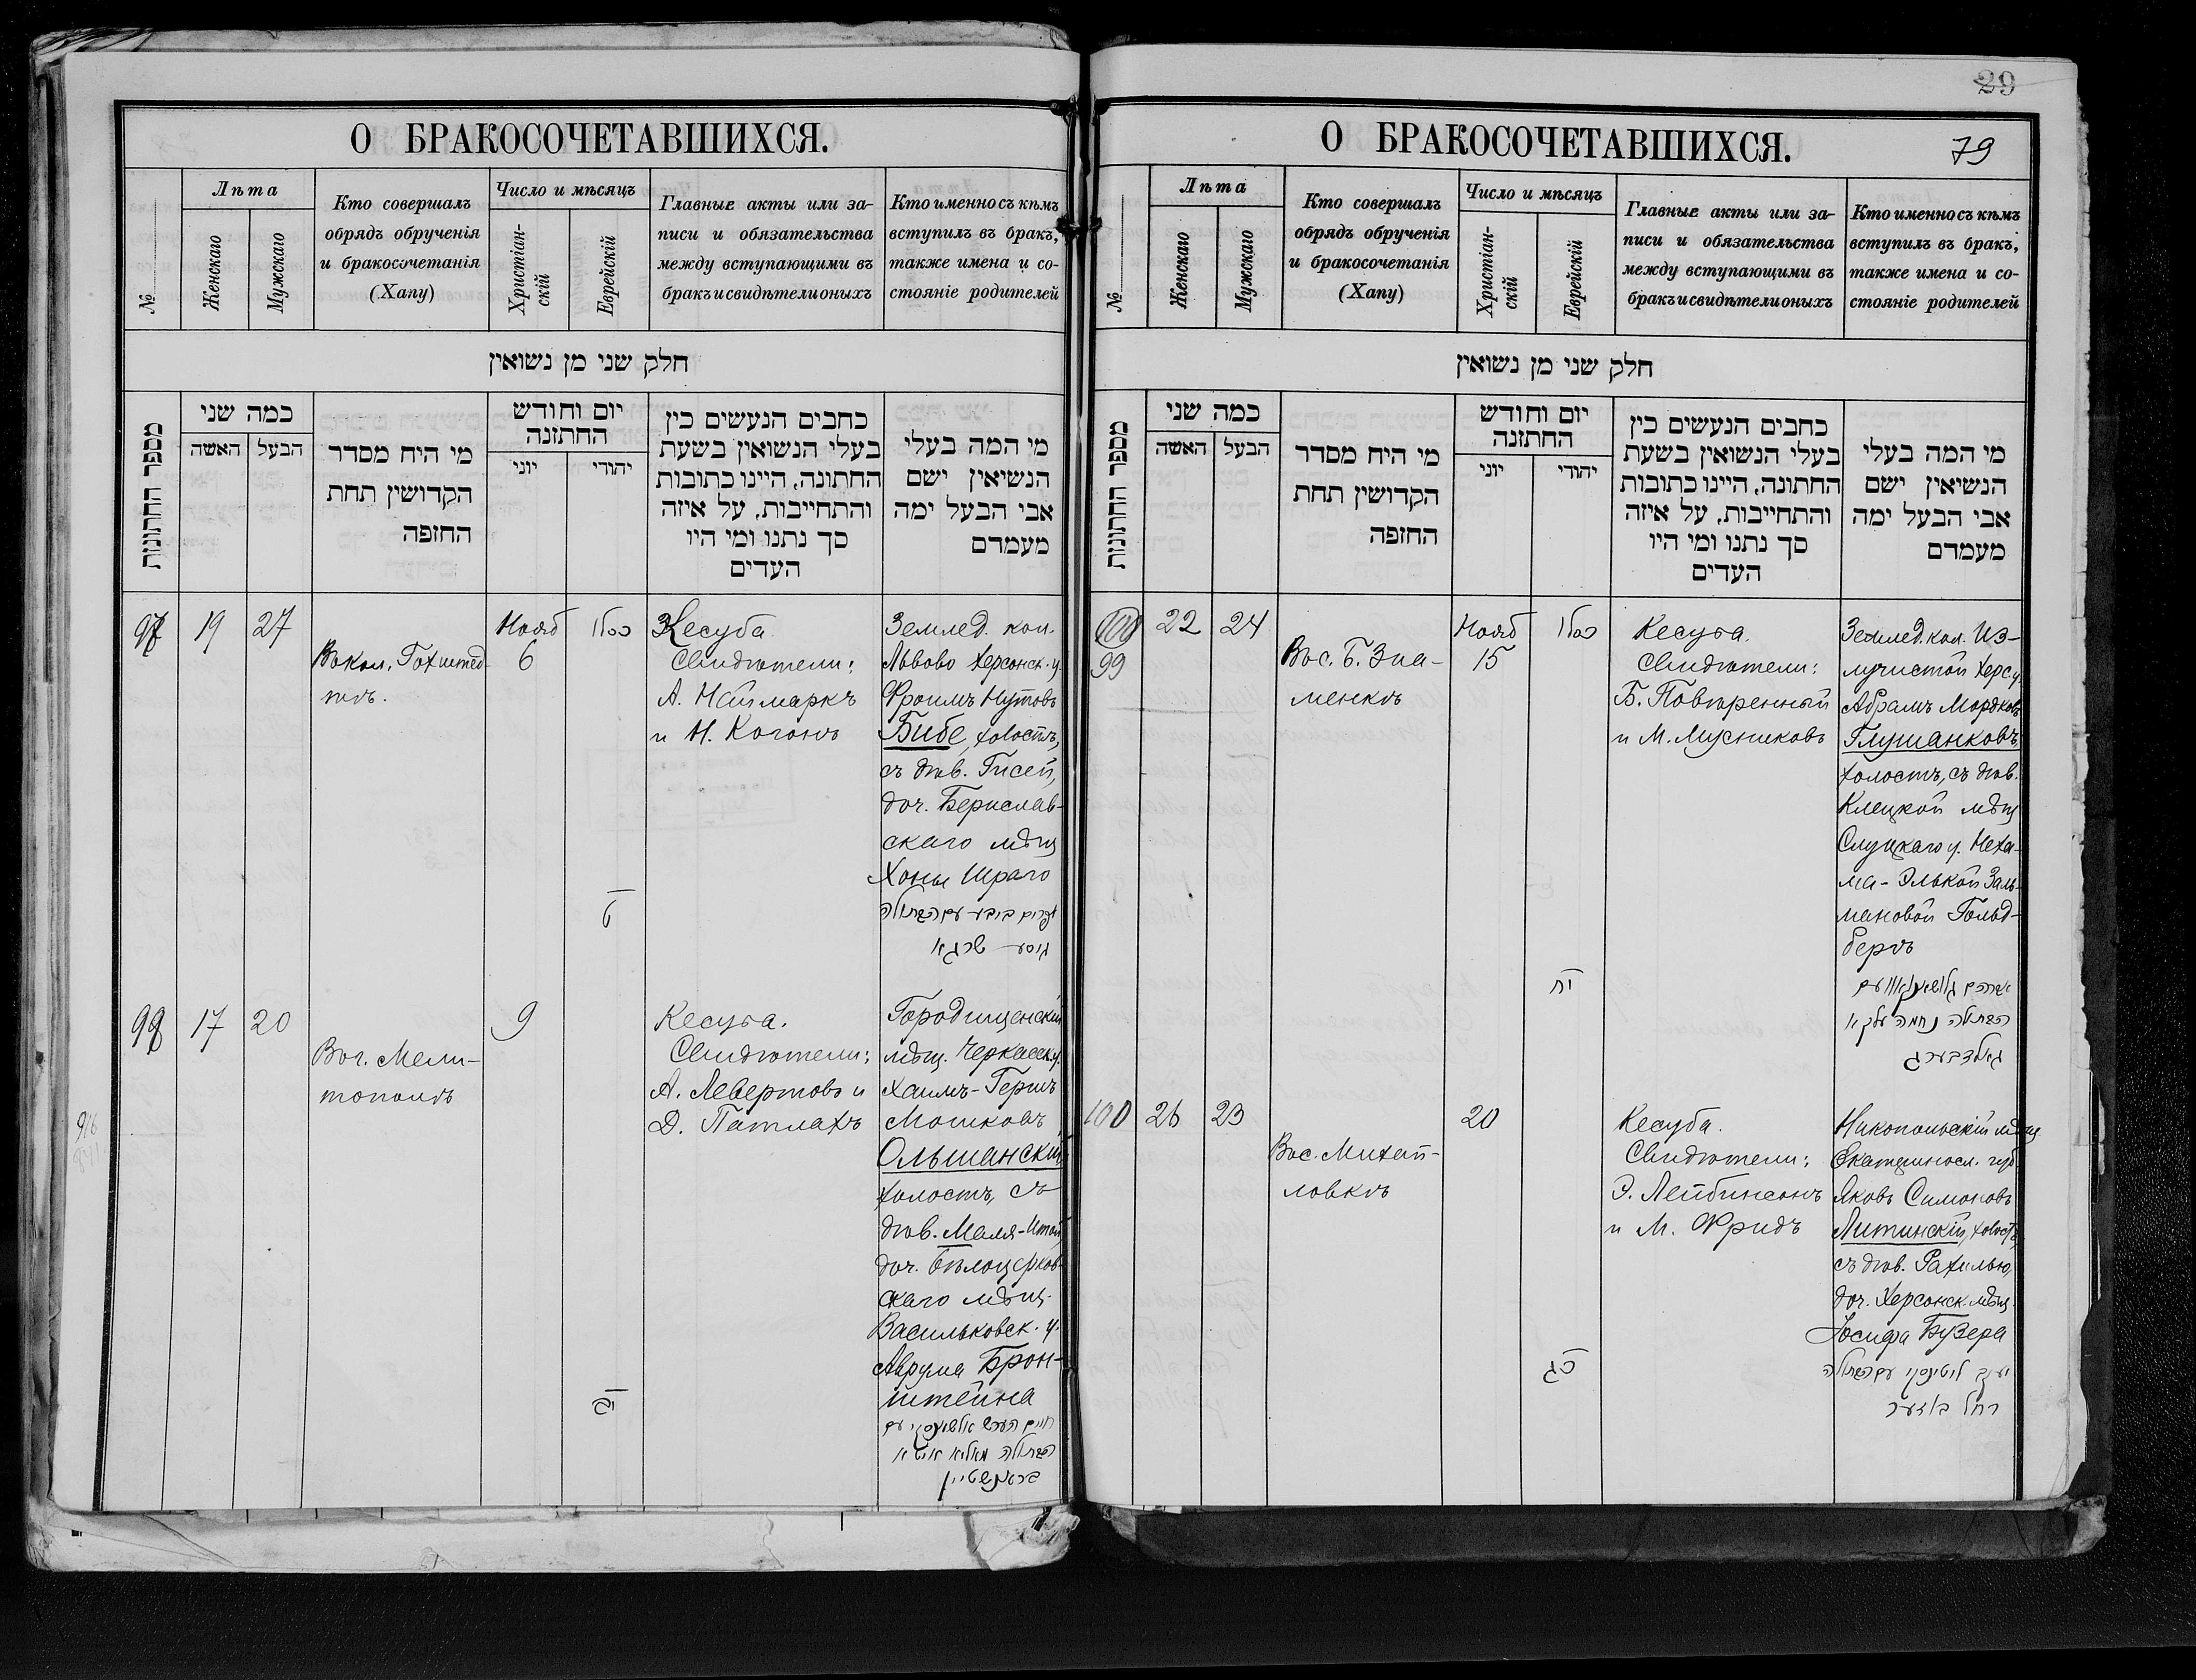 О БРАКОСОЧЕТАВШИХСЯ.
№
Лѣта
Женскаго
Мужскаго
Кто совершалъ
обрядъ обрученія
и бракосочетанія
(Хапу)
Число и мѣсяцъ
Христіан-
скій
Еврейскій
Главные акты или за-
писи и обязательства
между вступающими въ
бракъ и свидѣтели оныхъ
Кто именно съ кѣмъ
вступилъ въ бракъ,
также имена и со-
стояніе родителей
חלק שני מן נשואין
מספר החתונות
כמה שני
האשה
הבעל
מי היח מסדר
הקדושין תחת
החזפה
יום וחודש
החתזנה
יוני
יהודי
כחבים הנעשים כין
בעלי הנשואין בשעת
החתונה, היינו כתובות
והתחייבות, על איזה
סך נתנו ומי היו
העדים
מי המה בעלי
הנשיאין ישם
אבי הבעל ימה
מעמדם
97
19
27
Въ кол.
Нояб
6
כסלו
ט
Кесуба
Свидѣтели:
А. Наймаркъ
и Н. Коганъ
Землед. кол.
Львово Херсонск. у.
Фроимъ Нутовъ
Бибе, холостъ,
съ дѣв. Гисей,
доч. Берислав-
скаго мѣщ
Хоны Шраго
אפרים ביבע עם הבתולה
גיסע שרגא
98
17
20
Въ г. Мели-
тополѣ
9
יב
Кесуба.
Свидѣтели:
А. Левертовъ и
Д. Патлахъ
Городищенскій
мѣщ. Черкасск. у.
Хаимъ-Гершъ
Мошковъ
Ольшанскій,
холостъ, съ
дѣв. Маля-Итой,
доч. Бѣлоцерков-
скаго мѣщ.
Васильковск. у.
Аврума Брон-
штейна
חיים הערש אלשאנסקי עם
הבתולה מאליא איטא
בראנשטיין
29
О БРАКОСОЧЕТАВШИХСЯ.
79
№
Лѣта
Женскаго
Мужскаго
Кто совершалъ
обрядъ обрученія
и бракосочетанія
(Хапу)
Число и мѣсяцъ
Христіан-
скій
Еврейскій
Главные акты или за-
писи и обязательства
между вступающими въ
бракъ и свидѣтели оныхъ
Кто именно съ кѣмъ
вступилъ въ бракъ,
также имена и со-
стояніе родителей
חלק שני מן נשואין
מספר החתונות
כמה שני
האשה
הבעל
מי היח מסדר
הקדושין תחת
החזפה
יום וחודש
החתזנה
יוני
יהודי
כחבים הנעשים כין
בעלי הנשואין בשעת
החתונה, היינו כתובות
והתחייבות, על איזה
סך נתנו ומי היו
העדים
מי המה בעלי
הנשיאין ישם
אבי הבעל ימה
מעמדם
100
99
22
24
Въ с. Б. Зна-
менкѣ
Нояб
15
כסלו
יח
Кесуба.
Свидѣтели:
Б. Повѣренный
и М. Лусниковъ
Землед. кол. Из-
лучистой Херс. у.
Абрамъ Мордковъ
Глушанковъ,
холостъ, съ дѣв.
Клецкой мѣщ
Слуцкаго у. Неха-
ма-Элькой Заль-
мановой Гольд-
бергъ
אברהם גלושאנקאוו עם
הבתולה נחמה עלקא
גאלדבערג
100
26
23
Въ с. Михай-
ловкѣ
20
כג
Кесуба.
Свидѣтели:
Э. Лейбинсонъ
и М. Фридъ
Никопольскій мѣщ
Екатериносл. губ
Яковъ Симоновъ
Литинскій, холост.
съ дѣв. Рахилью,
доч. Херсонск. мѣщ.
Іосифа Бузера
יעקב ליטינסקי עם הבתולה
רחל בוזער